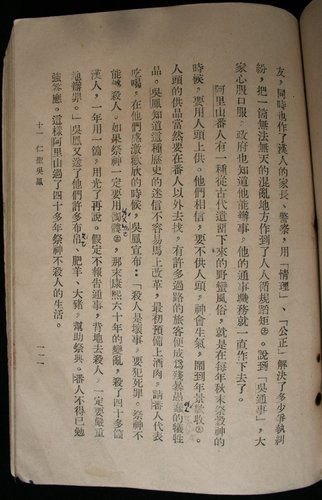 友，同時也作了漢人的家長、警察，用「情理」、「公正」解決了多少爭執糾
紛，把一個無法無天的混亂地方作到了人人循規蹈矩。說到「吳通事」，大
家心服口服，政府也知道他能辦事，他的通事職務就一直作下去了。
阿里山番人有一種從古代遺留下來的野蠻風俗，就是在每年秋末祭穀神的
時候，要用人頭上供。他們相信，要不供人頭，神會生氣，鬧到年景歉收。
人頭的供品當然要在番人以外去找，有許多過路的旅客便成爲殘暴愚蠢的犧牲
品。吳鳳知道這種歷史的迷信不容易馬上改革，最初預備上酒肉，請番人代表
吃喝，在他們感激歡欣的時候，吳鳳宣布：「殺人是壞事，要犯死罪。祭神不
能殺人。如果祭神一定要用髑髏，那末康熙六十年的變亂，殺了四十多個
漢人，一年用一個，用光了再說。假定不報告通事，背地去殺人，一定要嚴重
地辦罪。」吳鳳又送了他們許多布疋、肥羊、大豬，幫助祭典。番人不得已勉
強答應。這樣阿里山過了四十多年祭神不殺人的生活。
十一 仁聖吳鳳
一一